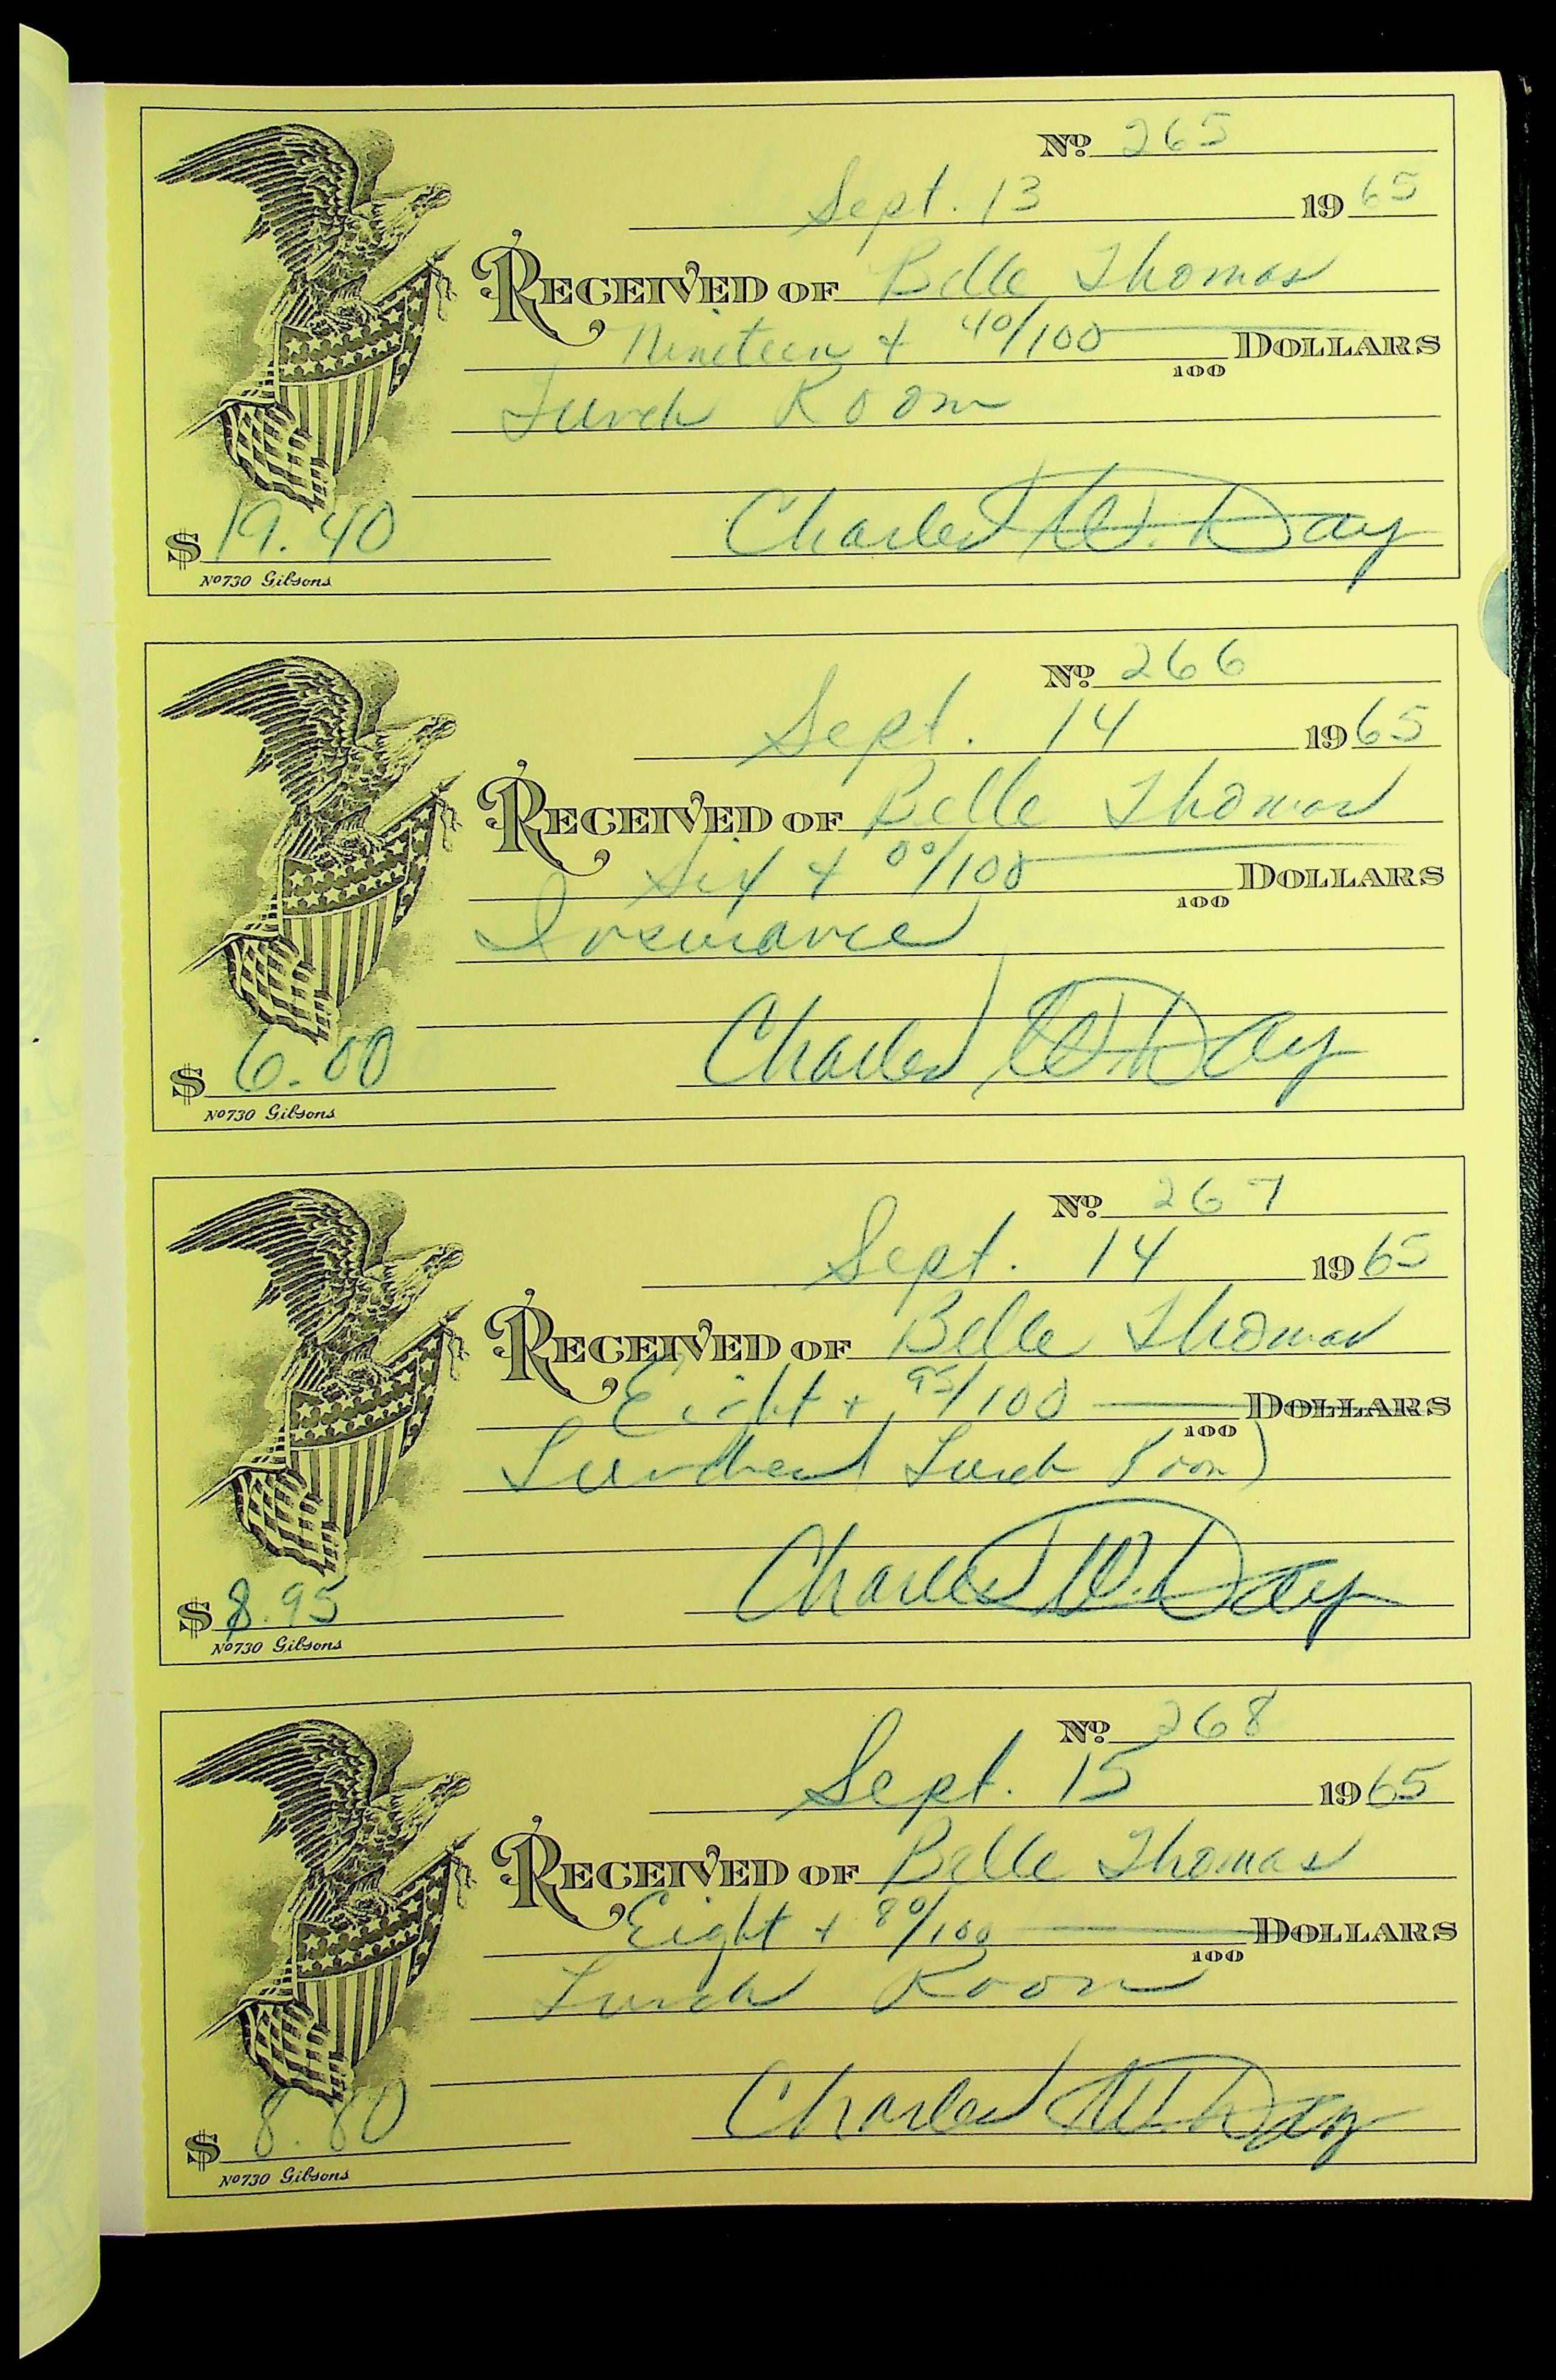 Nº 265
Sept. 13 1965
RECEIVED OF Belle Thomas
Nineteen + 40/100 DOLLARS
100
Lunch Room
Charles W. Day
$ 19.40
Nº 730 Gibsons
Nº 266
Sept. 14 1965
RECEIVED OF Belle Thomas
Six + 00/100 DOLLARS
100
Insurance
Charles W. Day
$ 6.00
Nº 730 Gibsons
Nº 267
Sept. 14 1965
RECEIVED OF Belle Thomas
Eight + 95/100 DOLLARS
100
Lunches (Lunch Room)
Charles W. Day
$ 8.95
Nº 730 Gibsons
Nº 268
Sept. 15 1965
RECEIVED OF Belle Thomas
Eight + 80/100 DOLLARS
100
Lunch Room
Charles W. Day
$ 8.80
Nº 730 Gibsons